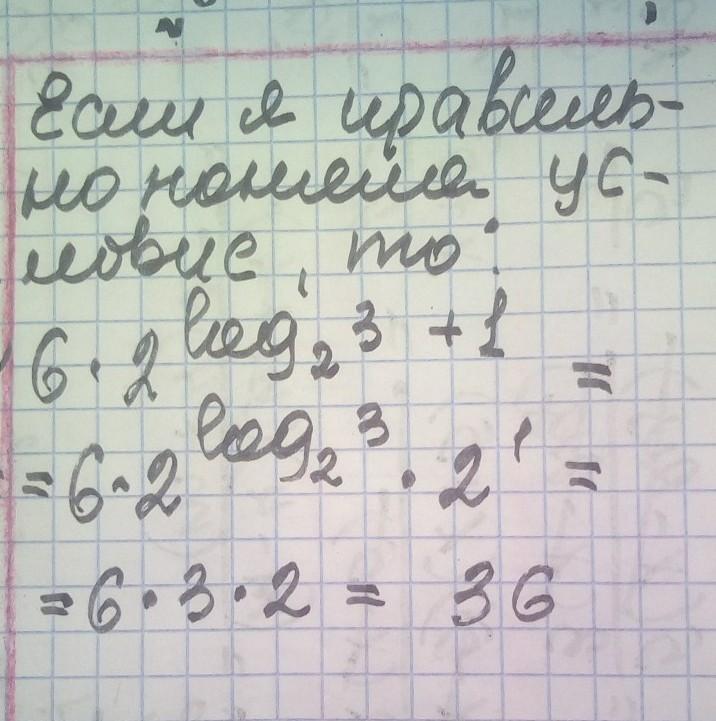 Если я правиль-
но поняла ус-
ловие, то:
6 · 2^{log₂3 + 1} =
= 6 · 2^{log₂3} · 2¹ =
= 6 · 3 · 2 = 36